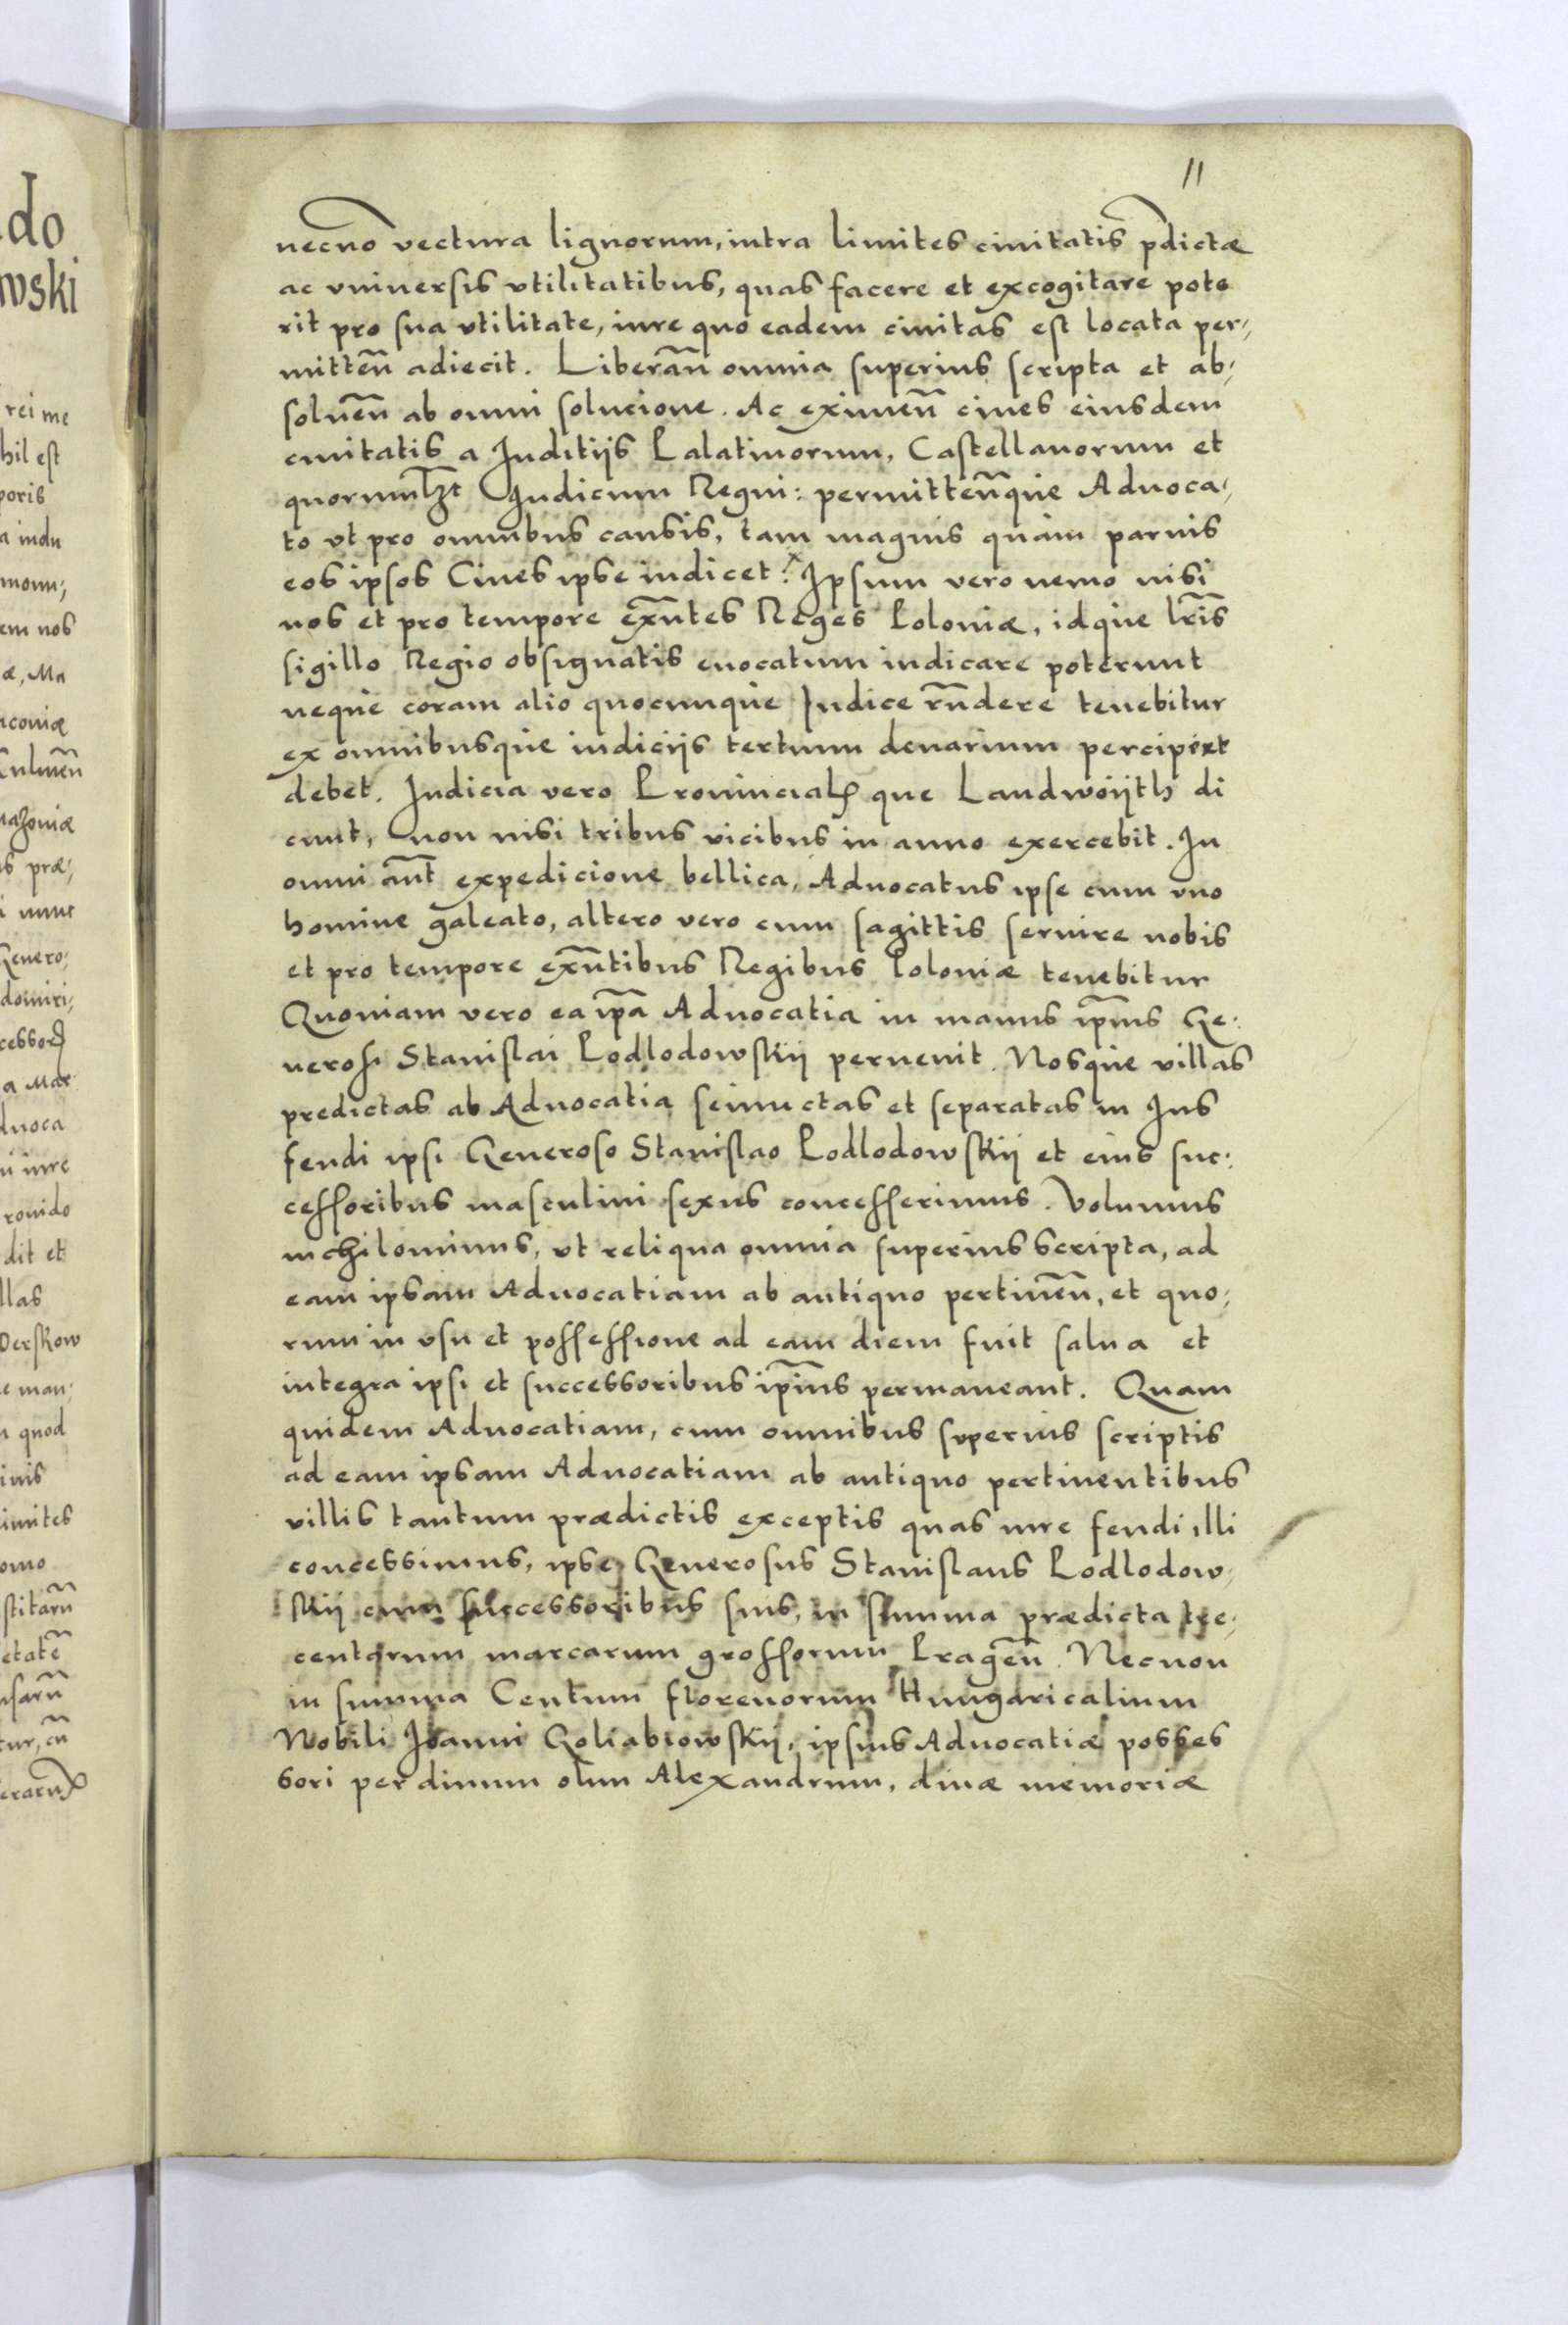 11
necno vectura lignorum, intra limites ciuitatis p̄dictæ
ac vniuersis vtilitatibus, quas facere et excogitare pote
rit pro sua vtilitate, iure quo eadem ciuitas est locata per,
mitten̄ adiecit. Liberan̄ omnia superius scripta et ab,
soluen̄ ab omni solucione. Ac eximen̄ ciues eiusdem
ciuitatis a Juditijs Palatinorum, Castellanorum et
quorumlꝫt Judicum Regni: permitten̄que Aduoca,
to vt pro omnibus causis, tam magnis quàm paruis
eos ipsos Ciues ipse iudicet: Ipsum vero nemo nisi
nos et pro tempore exn̄tes Reges Poloniæ, idque lr̄is
sigillo Regio obsignatis euocatum iudicare poterunt
neque coram alio quocunque Judice rn̄dere tenebitur
ex omnibusque iudicijs tertium denarium percipiet
debet. Judicia vero Prouincialꝭ que Landwoijth di
cunt, non nisi tribus vicibus in anno exercebit. In
omni aūt expedicione bellica, Aduocatus ipse cum vno
homine galeato, altero vero cum sagittis seruire nobis
et pro tempore exn̄tibus Regibus Poloniæ tenebitur
Quoniam vero ea ip̄a Aduocatia in manus ip̄ius Ge:
nerosi Stanislai Podlodowskij peruenit. Nosque villas
predictas ab Aduocatia seiunctas et separatas in Jus
feudi ipsi Generoso Stanislao Podlodowskij et eius suc:
cessoribus masculini sexus concesserimus. Volumus
nichilominus, vt reliqua omnia superius scripta, ad
eam ipsam Aduocatiam ab antiquo pertinen̄, et quo,
rum in vsu et possessione ad eam diem fuit salua et
integra ipsi et successoribus ip̄ius permaneant. Quam
quidem Aduocatiam, cum omnibus superius scriptis
ad eam ipsam Aduocatiam ab antiquo pertinentibus
villis tantum prædictis exceptis quas iure feudi illi
concessimus, ipse Generosus Stanislaus Podlodow,
skij cum successoribus suis, in summa prædicta tre,
centarum marcarum grossorum Pragen̄. Necnon
in summa Centum florenorum Hungaricalium
Nobili Joanni Goliabiowskij, ipsius Aduocatiæ posses
sori per diuum olim Alexandrum, diuæ memoriæ